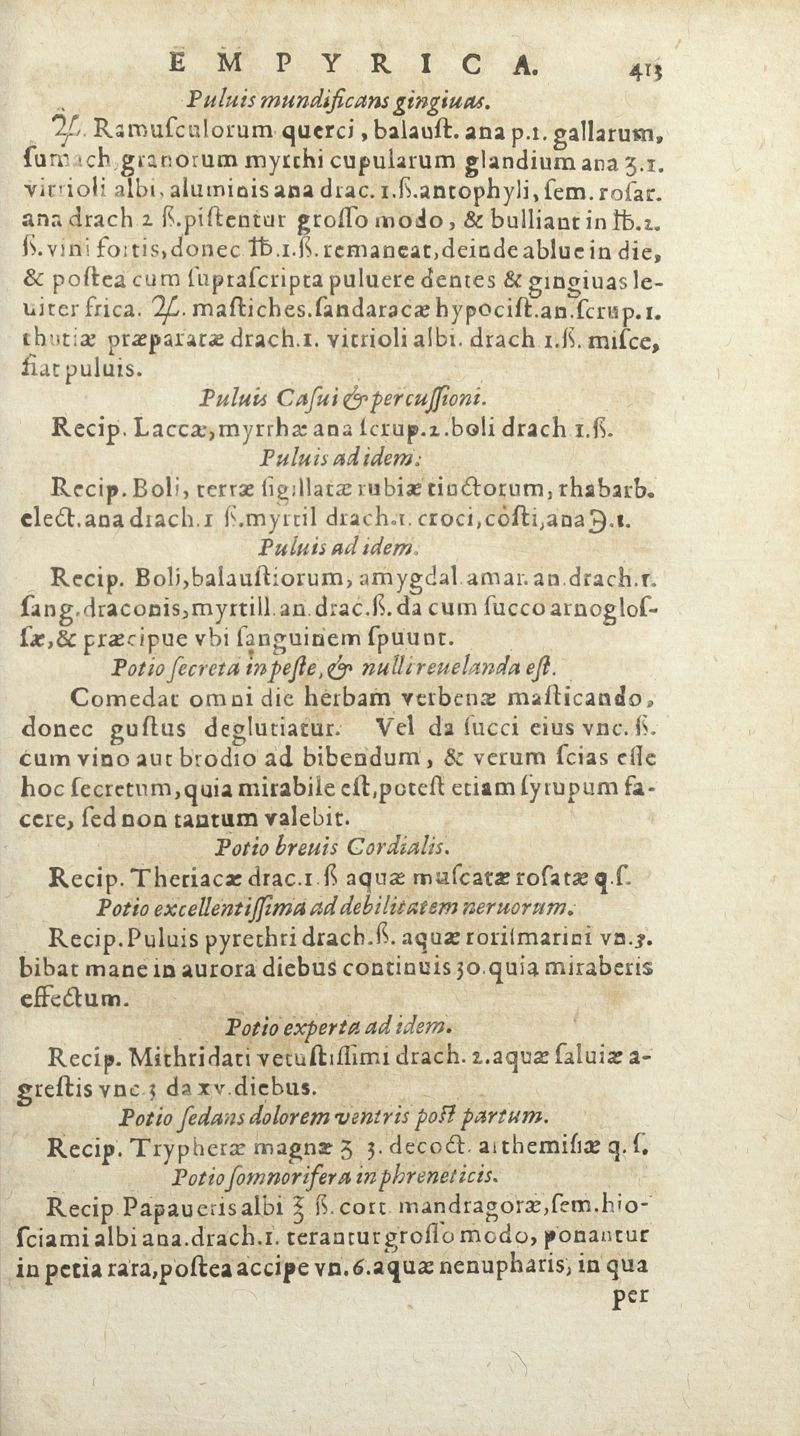 EMPYRICA. 413
Puluis mundificans gingiuas.
℞. Ramuſculorum querci, balauſt. ana p.1. gallarum,
ſumach granorum myrthi cupularum glandium ana ʒ.1.
vitrioli albi, aluminis ana drac. 1.ß. antophyli, ſem. roſar.
ana drach 2 ß. piſtentur groſſo modo, & bulliant in ℔.2.
ß. vini fortis, donec ℔.1.ß. remaneat, deinde ablue in die,
& poſtea cum ſupraſcripta puluere dentes & gingiuas le-
uiter frica. ℞. maſtiches. ſandaracæ hypociſt. an. ſcrup. 1.
thutiæ præparatæ drach. 1. vitrioli albi. drach 1.ß. miſce,
fiat puluis.
Puluis Caſui & percuſſioni.
Recip. Laccæ, myrrhæ ana ſcrup. 2. boli drach 1.ß.
Puluis ad idem:
Recip. Boli, terræ ſigillatæ rubiæ tinctorum, rhabarb.
elect. ana drach. 1 ß. myrtil drach. 1. croci, coſti, ana ℈.1.
Puluis ad idem.
Recip. Boli, balauſtiorum, amygdal amar. an. drach. 1.
ſang. draconis, myrtill. an. drac. ß. da cum ſucco arnogloſ-
ſæ, & præcipue vbi ſanguinem ſpuunt.
Potio ſecreta in peſte, & nulli reuelanda eſt.
Comedat omni die herbam verbenæ maſticando,
donec guſtus deglutiatur. Vel da ſucci eius vnc. ß.
cum vino aut brodio ad bibendum, & verum ſcias eſſe
hoc ſecretum, quia mirabile eſt, poteſt etiam ſyrupum fa-
cere, ſed non tantum valebit.
Potio breuis Cordialis.
Recip. Theriacæ drac. 1 ß aquæ muſcatæ roſatæ q.ſ.
Potio excellentiſſima ad debilitatem neruorum.
Recip. Puluis pyrethri drach. ß. aquæ roriſmarini vn. 3.
bibat mane in aurora diebus continuis 30. quia miraberis
effectum.
Potio experta ad idem.
Recip. Mithridati vetuſtiſſimi drach. 2. aquæ ſaluiæ a-
greſtis vnc. 3 da xv. diebus.
Potio ſedans dolorem ventris poſt partum.
Recip. Trypheræ magnæ ʒ 3. decoct. arthemiſiæ q. ſ.
Potio ſomnorifera in phreneticis.
Recip Papaueris albi ℥ ß. cort mandragoræ, ſem. hio-
ſciami albi ana. drach. 1. terantur groſſo modo, ponantur
in petia rara, poſtea accipe vn. 6. aquæ nenupharis, in qua
per